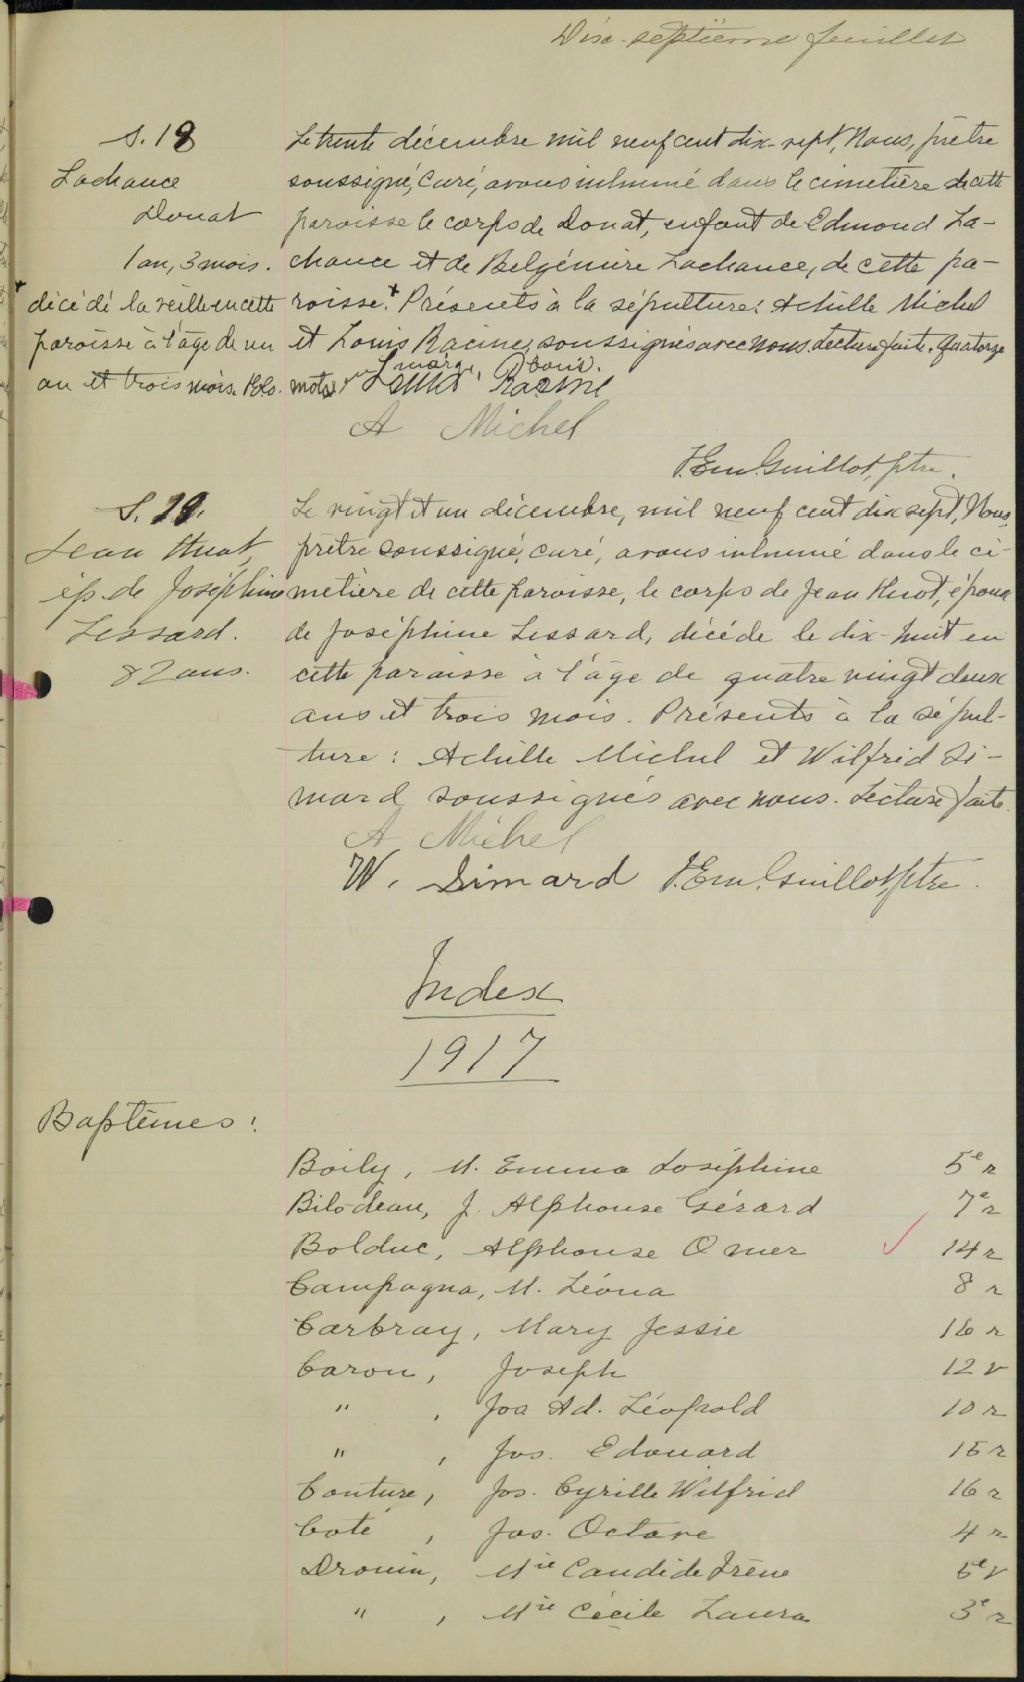 Dix-septième feuillet
S. 18
Lachance
Donat
1 an, 3 mois.
+ décédé la veille en cette
paroisse à l'âge de un
an et trois mois.
Le trente décembre mil neuf cent dix-sept, Nous, prêtre
soussigné, curé, avons inhumé dans le cimetière de cette
paroisse le corps de Donat, enfant de Edmond La-
chance et de Belgémire Lachance, de cette pa-
roisse.+ Présents à la sépulture: Achille Michel
et Louis Racine, soussignés avec nous. Lecture faite. Quatorze
mots en marge, bons.
Louis Racine
A Michel
J. Em. Guillot, ptre.
S. 19.
Jean Huot,
ép. de Joséphine
Lessard.
82 ans.
Le vingt et un décembre, mil neuf cent dix sept, Nous,
prêtre soussigné, curé, avons inhumé dans le ci-
metière de cette paroisse, le corps de Jean Huot, époux
de Joséphine Lessard, décédé le dix-huit en
cette paroisse à l'âge de quatre vingt deux
ans et trois mois. Présents à la sépul-
ture: Achille Michel et Wilfrid Si-
mard soussignés avec nous. Lecture faite.
A Michel
W. Simard J. Em. Guillot, ptre.
Index
1917
Baptêmes:
Boily, M. Emma Joséphine 5e r
Bilodeau, J. Alphonse Gérard 7e r
Bolduc, Alphonse Omer 14 r
Campagna, M. Léona 8 r
Carbray, Mary Jessie 16 r
Caron, Joseph 12 v
" , Jos Ad. Léopold 10 r
" , Jos. Edouard 15 r
Couture, Jos. Cyrille Wilfrid 16 r
Coté , Jos. Octave 4 r
Drouin, Mie Candide Irène 5e v
" , Mie Cécile Laura 3e r